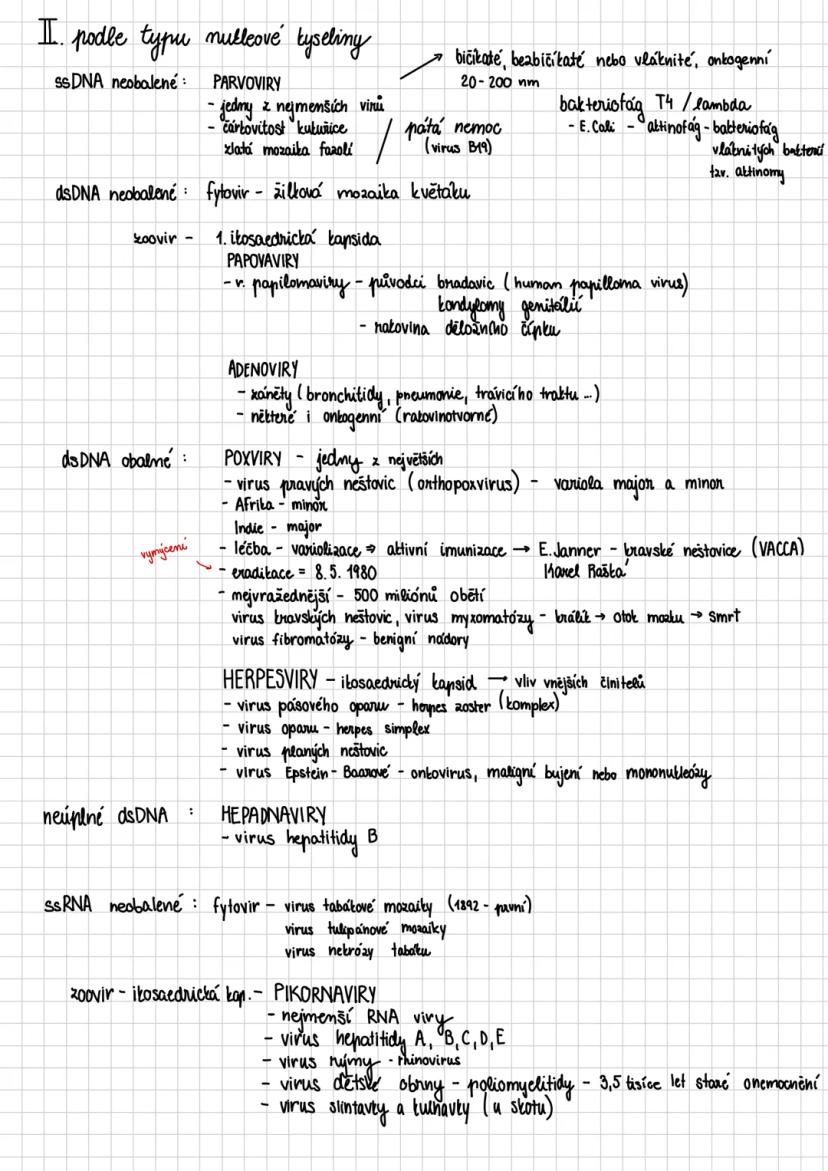 II. podle typu nukleové kyseliny
bičíkaté, bezbičíkaté nebo vláknité, onkogenní
20-200 nm
ssDNA neobalené : PARVOVIRY
- jedny z nejmenších virů
- čárkovitost kukuřice
zlatá mozaika fazolí
/ pátá nemoc
(virus B19)
bakteriofág T4 / lambda
- E.Coli - aktinofág - bakteriofág
vláknitých bakterií
tzv. aktinomy
dsDNA neobalené : fytovir - žilková mozaika květáku
zoovir - 1. ikosaedrická kapsida
PAPOVAVIRY
- r. papilomaviry - původci bradavic (human papilloma virus)
kondylomy genitálií
- rakovina děložního čípku
ADENOVIRY
- záněty (bronchitidy, pneumonie, trávicího traktu ...)
- některé i onkogenní (rakovinotvorné)
dsDNA obalné : POXVIRY - jedny z největších
- virus pravých neštovic (orthopoxvirus) - variola major a minor
- Afrika - minor
Indie - major
- léčba - variolizace ⇒ aktivní imunizace → E. Janner - kravské neštovice (VACCA)
vymýcení
- eradikace = 8.5. 1980 Karel Raška
- nejvražednější - 500 miliónů obětí
virus kravských neštovic, virus myxomatózy - králík → otok mozku → smrt
virus fibromatózy - benigní nádory
HERPESVIRY - ikosaednický kapsid → vliv vnějších činitelů
- virus pásového oparu - herpes zoster (komplex)
- virus oparu - herpes simplex
- virus planých neštovic
- virus Epstein - Baarové - onkovirus, maligní bujení nebo mononukleózy
neúplné dsDNA : HEPADNAVIRY
- virus hepatitidy B
ssRNA neobalené : fytovir - virus tabákové mozaiky (1892 - první)
virus tulipánové mozaiky
virus nekrózy tabáku
zoovir - ikosaedrická kap. - PIKORNAVIRY
- nejmenší RNA viry
- virus hepatitidy A, B, C, D, E
- virus rýmy - rhinovirus
- virus dětské obrny - poliomyelitidy - 3,5 tisíce let staré onemocnění
- virus slintavky a kulhavky (u skotu)